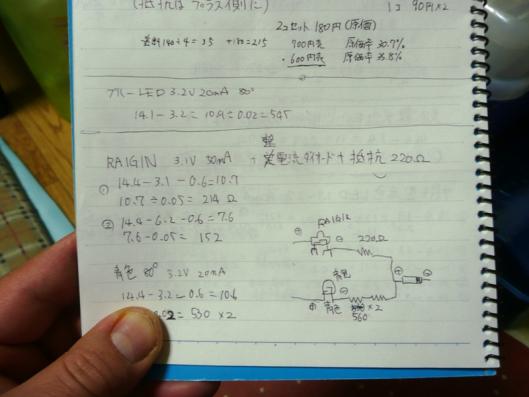 (抵抗はプラス側に)
1コ 90円×2
2コセット 180円(原価)
送料140÷4=35 +180=215
700円売 原価率 30.7%
・600円売 原価率 35.8%
ブルーLED 3.2V 20mA 80°
14.1-3.2= 10.9÷0.02=545
RAIGIN 3.1V 50mA + 整電流ダイオード+抵抗 220Ω
① 14.4-3.1-0.6=10.7
10.7÷0.05=214Ω
② 14.4-6.2-0.6=7.6
7.6÷0.05=152
RAIGIN
220Ω
青色 80° 3.2V 20mA
14.4-3.2-0.6=10.6
02=530×2
青色
青色
×2
560